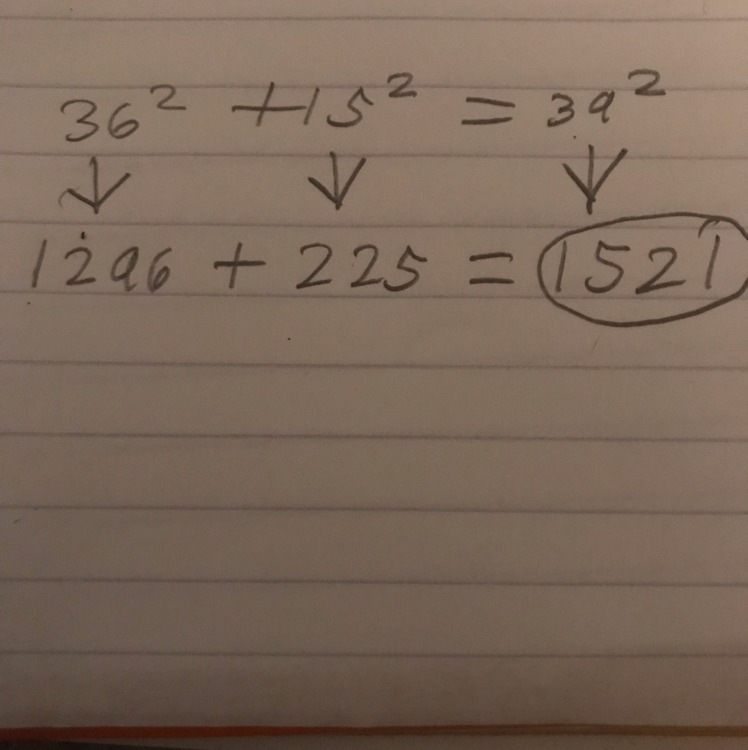 36² + 15² = 39²
↓ ↓ ↓
1296 + 225 = 1521